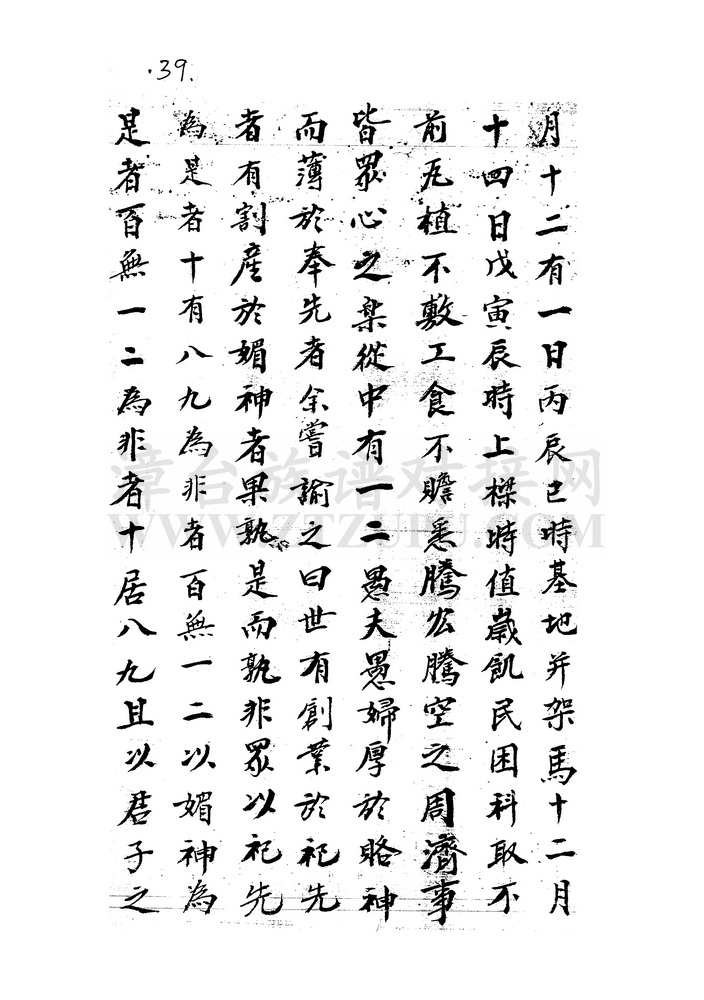 .39.
月十二有一日丙辰巳時基地并架馬十二月
十四日戊寅辰時上樑時值歲飢民困科取不
前瓦植不敷工食不贍悉騰宏騰空之周濟事
皆眾心之樂從中有一二愚夫愚婦厚於賂神
而薄於奉先者余嘗諭之曰世有創業於祀先
者有割產於媚神者果孰是而孰非眾以祀先
為是者十有八九為非者百無一二以媚神為
是者百無一二為非者十居八九且以君子之
漳台族谱对接网
WWW.ZTZUPU.COM